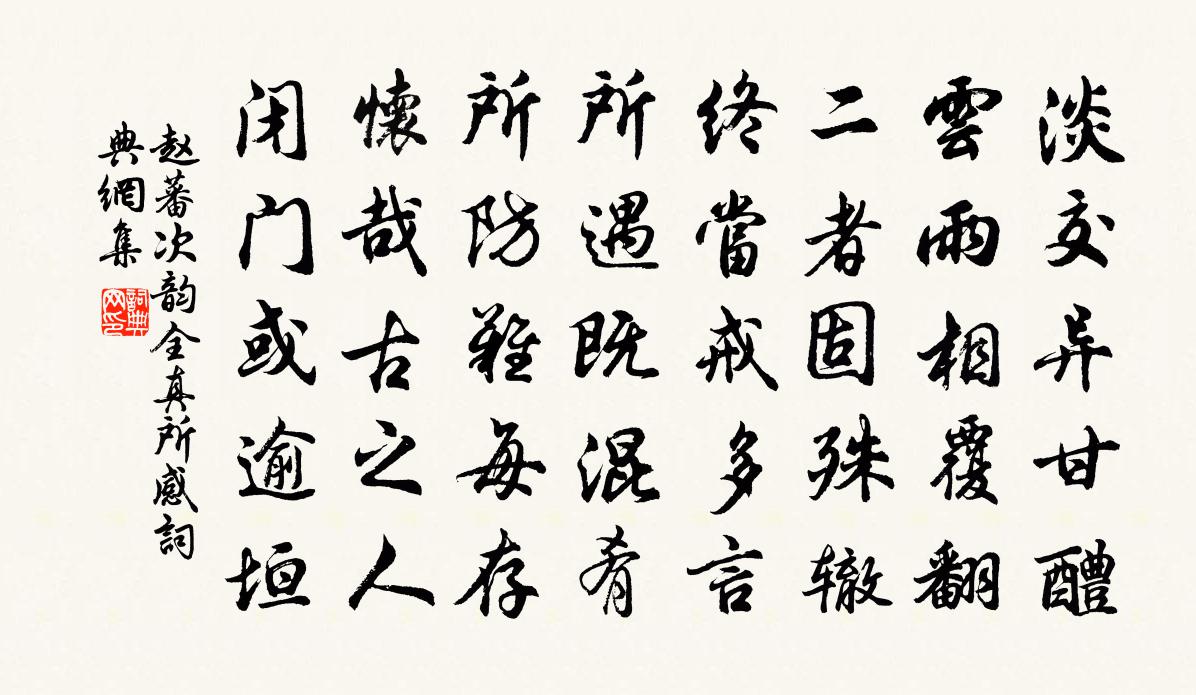 淡交异甘醴
雲雨相覆翻
二者固殊辙
终當戒多言
所遇既混肴
所防難每存
懷哉古之人
闭门或逾垣
赵蕃次韵全真所感詞
典網集
詞典網印